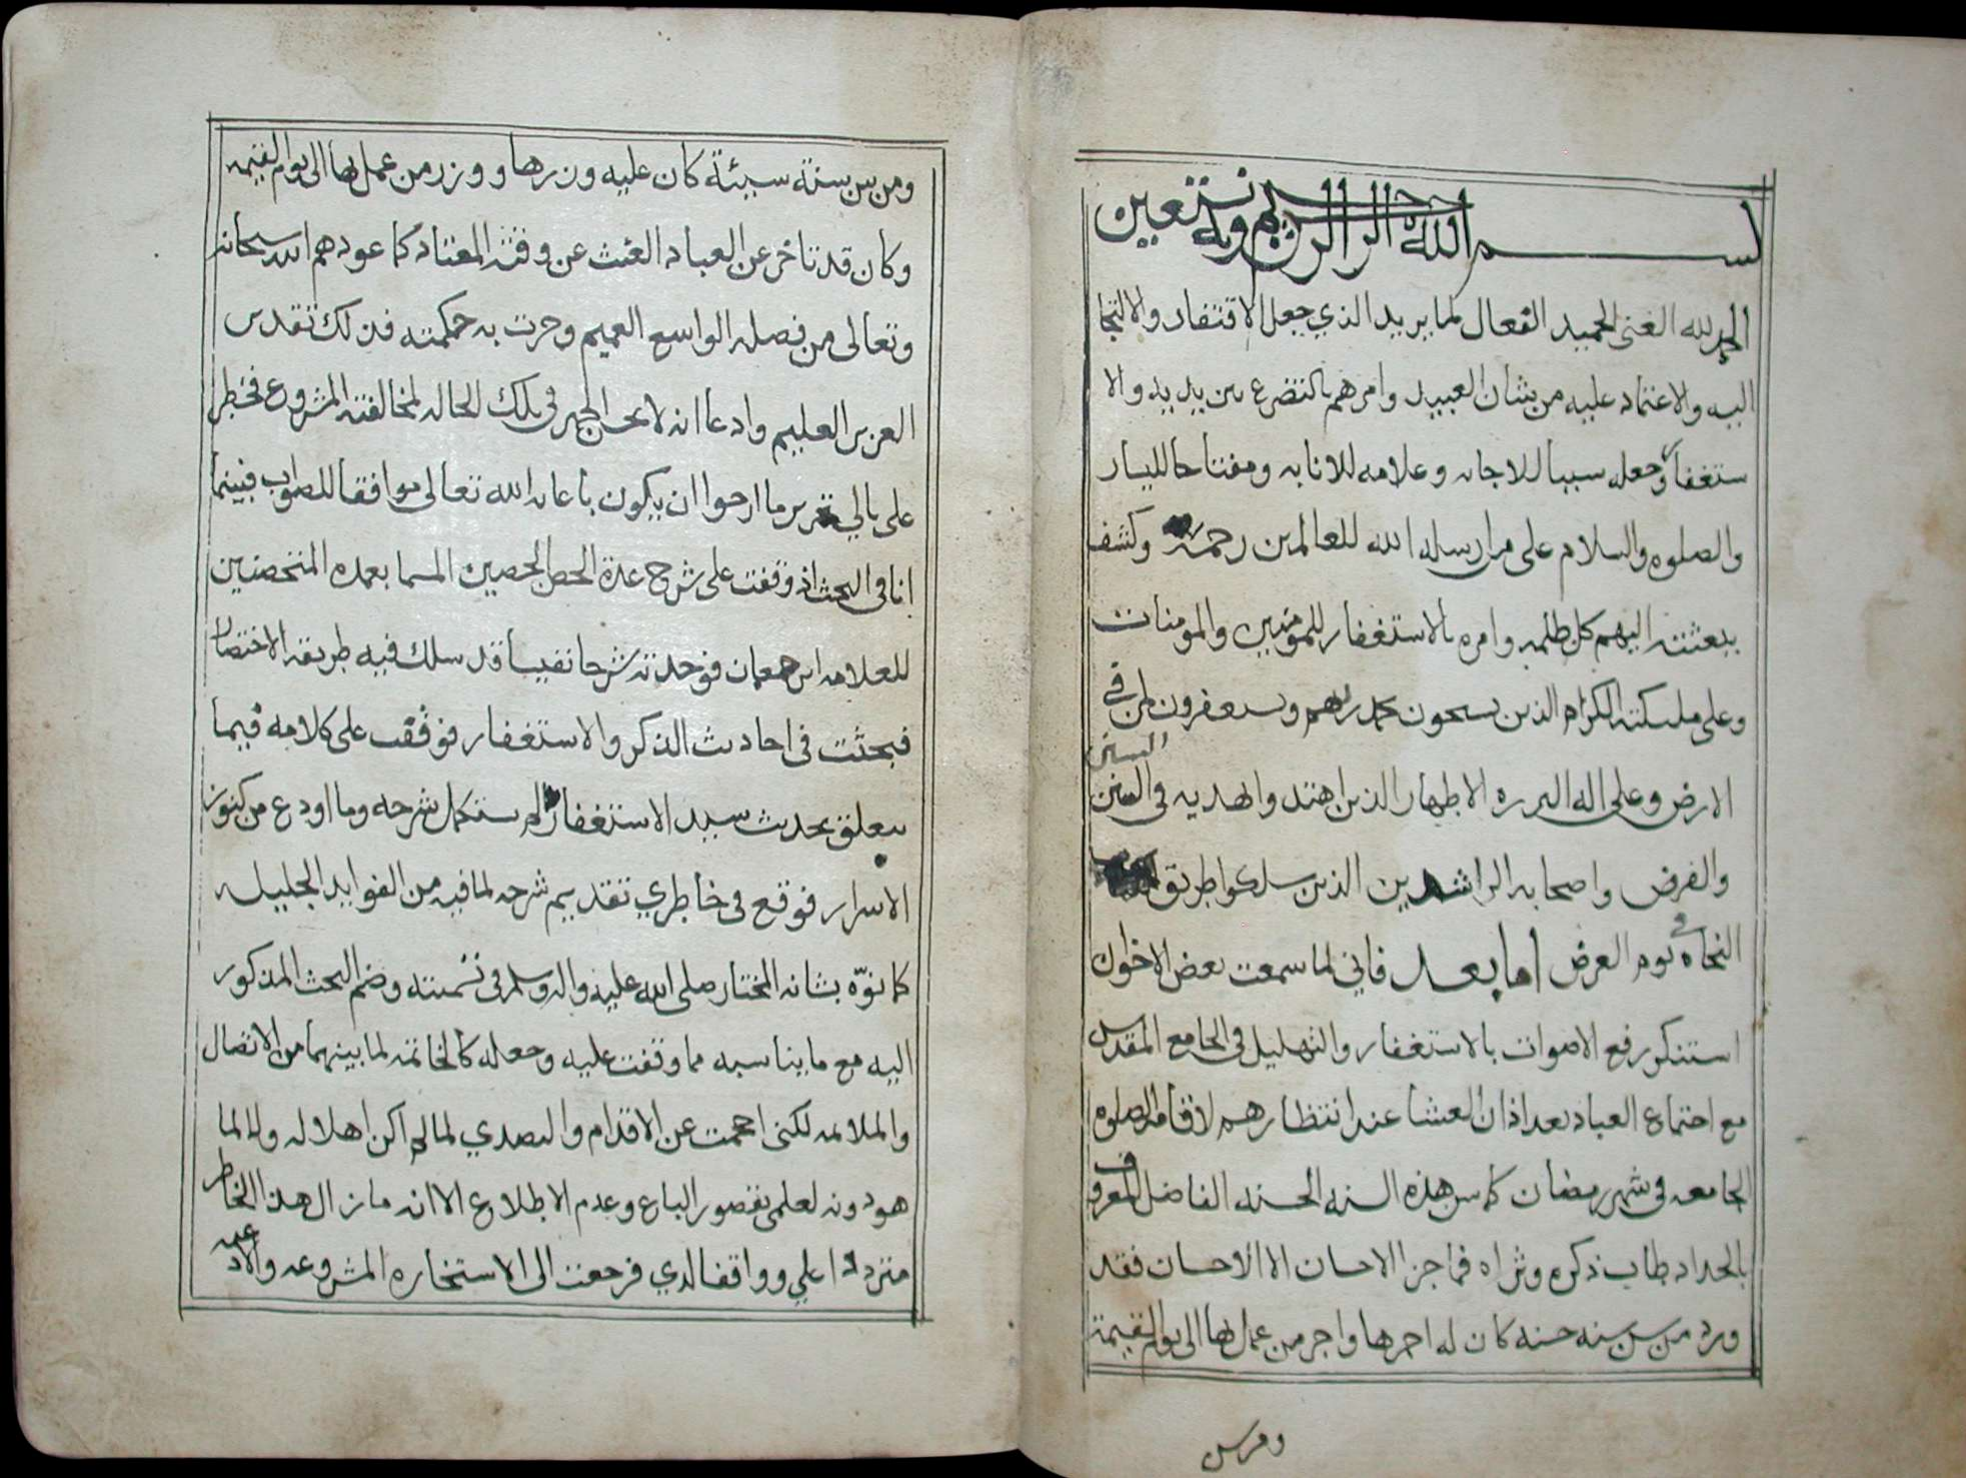 بسم الله الرحمن الرحيم وبه نستعين
الحمد لله الغني الحميد الفعال لما يريد الذي جعل الافتقار والالتجا
اليه والاعتماد عليه من شان العبيد وامرهم بالتضرع بين يديه والا
ستغفار وجعله سببا للاجابه وعلامه للانابه ومفتاحا لليسار
والصلوه والسلام على من ارسله الله للعالمين رحمة وكشف
ببعثته اليهم كل ظلمه وامره بالاستغفار للمؤمنين والمومنات
وعلى ملىكته الكرام الذين يسبحون بحمد ربهم ويستغفرون لمن في
السنن
الارض وعلى اله البرره الاطهار الذين اهتدوا لهديه في السنن
والفرض واصحابه الراشدين الذين سلكوا طريق
النجاه في يوم العرض اما بعد فاني لما سمعت بعض الاخوان
استنكر رفع الاصوات بالاستغفار والتهليل في الجامع المقدس
مع اجتماع العباد بعد اذان العشا عند انتظارهم لاقامة الصلوه
الجامعه في شهر رمضان كما سن هذه السنه الحسنه الفاضل المعروف
بالحداد طاب ذكره وثراه فما جزا الاحسان الا الاحسان فقد
ورد من سن سنه حسنه كان له اجرها واجر من عمل بها الى يوم القيمة
ومن سن
ومن سن سنة سيئة كان عليه وزرها ووزر من عمل بها الى يوم القيمه
وكان قد تاخر عن العباد الغيث عن وقته المعتاد كما عودهم الله سبحانه
وتعالى من فضله الواسع العميم وجرت به حكمته فذلك تقدس
العزيز العليم وادعا انه لا يحسن الجهر في تلك الحاله لمخالفته المشروع فخطر
على بالي تحرير ما ارجوا ان يكون باعانه الله تعالى موافقا للصواب فبينما
انا في البحث اذ وقفت على شرح عدة الحصن الحصين المسما بعمده المتحصنين
للعلامه ابن جعمان فوجدته شرحا نفيسا قد سلك فيه طريقه الاختصار
فبحثت في احاديث الذكر والاستغفار فوقفت على كلامه فيما
يتعلق بحديث سيد الاستغفار لم يستكمل شرحه وما اودع من كنوز
الاسرار فوقع في خاطري تقديم شرحه لما فيه من الفوايد الجليله
كما نوّه بشانه المختار صلى الله عليه واله وسلم في تسميته وضم البحث المذكور
اليه مع ما يناسبه مما وقفت عليه وجعله كالخاتمه لما بينهما من الاتصال
والملائمه لكني احجمت عن الاقدام والتصدي لما لم اكن اهلا له ولا لما
هو دونه لعلمي بقصور الباع وعدم الاطلاع الا انه ما زال هذا الخاطر
مترددا علي وواقفا لدي فرجعت الى الاستخاره المشروعه والادعيه